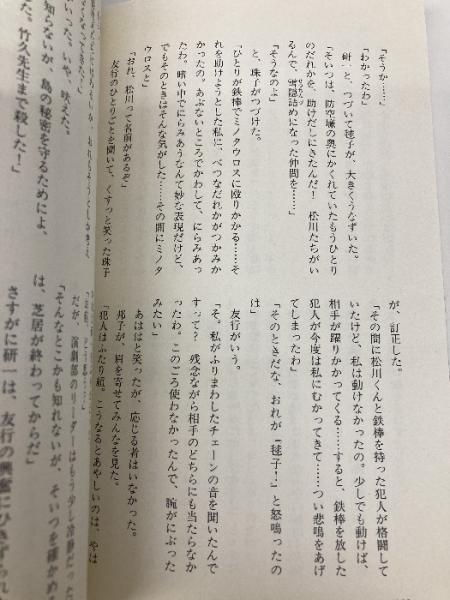 「そうか……」
「わかったわ」
と、つづいて毬子が、大きくうなずいた。
「そいつは、防空壕の奥にかくれていたもうひとり
のだれかを、助けだしにきたんだ！　松川たちがい
るんで、雪隠詰めになった仲間を……」
「そうなのよ」
と、珠子がつづけた。
「ひとりが鉄棒でミノタウロスに殴りかかる……そ
れを助けようとした私に、べつなだれかがつかみか
かったの。あぶないところでかわして、にらみあっ
たわ。暗い中でにらみあうなんて妙な表現だけど、
でもそのときはそんな気がした……その間にミノタ
ウロスと」
「おれ、松川って名前があるぞ」
友行のひとりごとを聞いて、くすっと笑った珠子
が、訂正した。
「その間に松川くんと鉄棒を持った犯人が格闘して
いたけど、私は動けなかったの。少しでも動けば、
相手が躍りかかってくる……すると、鉄棒を放した
犯人が今度は私にむかってきて……つい悲鳴をあげ
てしまったわ」
「そのときだな、おれが『毬子！』と怒鳴ったの
は」
友行がいう。
「そ。私がふりまわしたチェーンの音を聞いたんで
すって？　残念ながら相手のどちらにも当たらなか
ったわ。このごろ使わなかったんで、腕がにぶった
みたい」
あははと笑ったが、応じる者はいなかった。
邦子が、肩を寄せてみんなを見た。
「犯人はふたり組。こうなるとあやしいのは、やは
いった。いや、吠えた。
知らないが、島の秘密を守るためによ、
た。竹久先生まで殺した！」
だが、演劇部のリーダーはもう少し冷静だった
「そんなとこかも知れないが、そいつを確かめる
は、芝居が終わってからだ」
さすがに研一は、友行の興奮にひきずられ